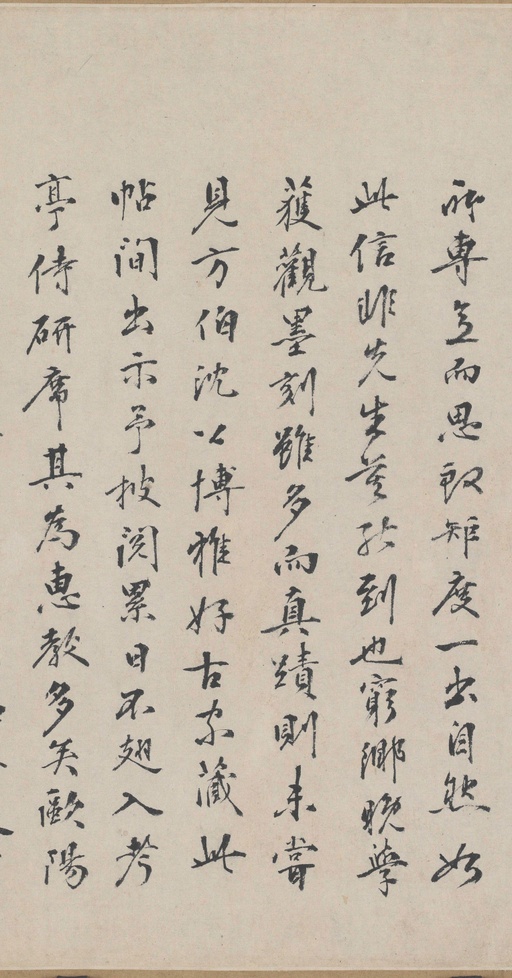 專立而思致矩度一出自然如
此信非先生莫能到也窮鄉晚學
獲觀墨刻雖多而真蹟則未嘗
見方伯沈公博雅好古家藏此
帖間出示予披閱累日不翅入考
亭侍研席其為惠教多矣歐陽